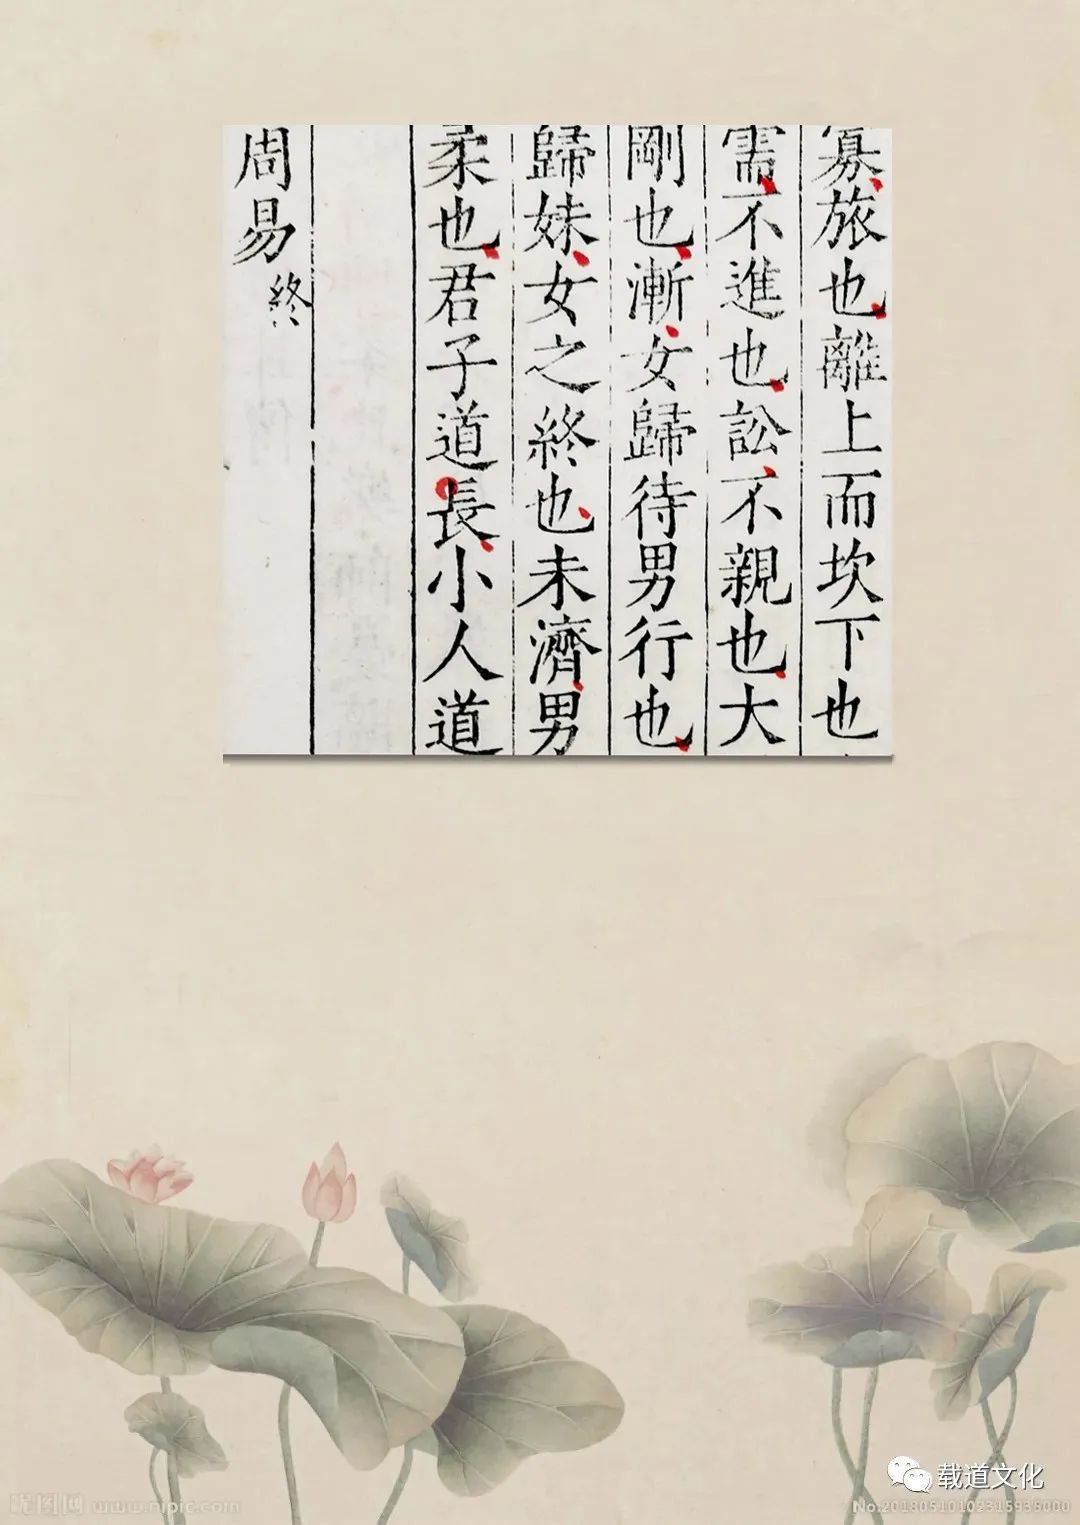 寡旅也離上而坎下也
需不進也訟不親也大
剛也漸女歸待男行也
歸妹女之終也未濟男
柔也君子道長小人道
周易終
载道文化
昵图网 www.nipic.com
No:20180510102315935000